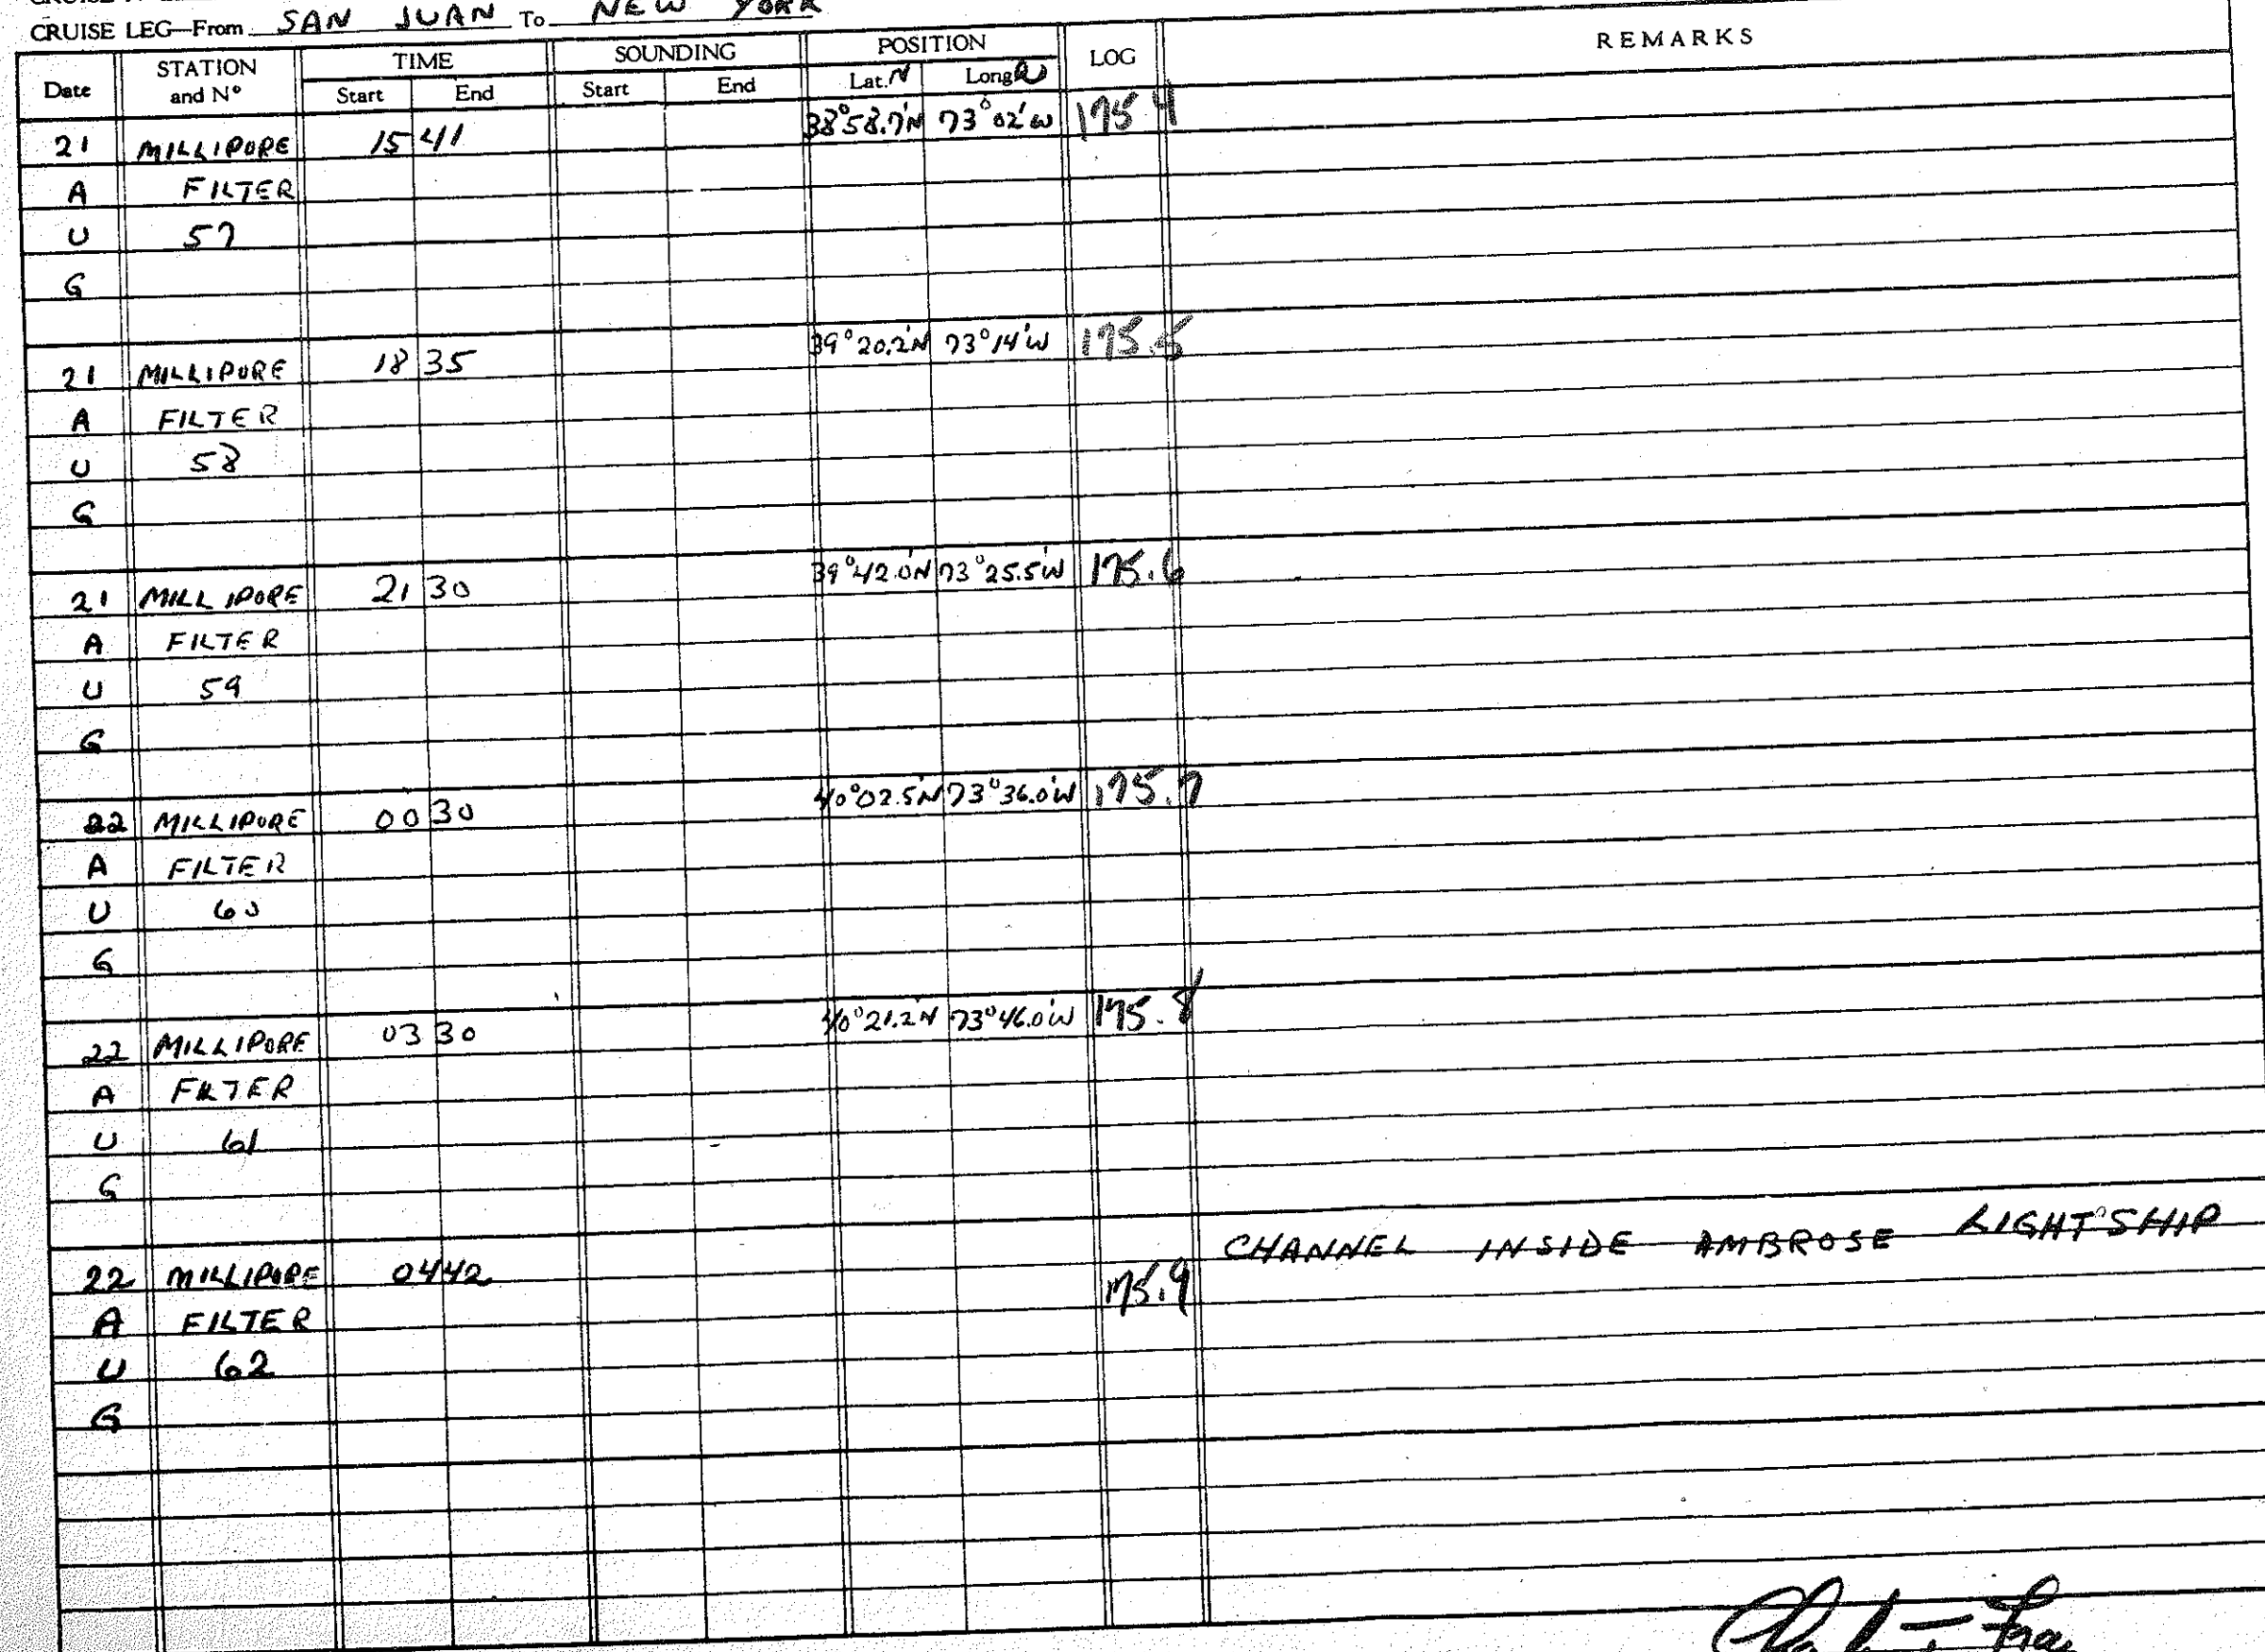 CRUISE LEG—From SAN JUAN To NEW YORK
Date STATION and N° TIME Start End SOUNDING Start End POSITION Lat. N Long W LOG REMARKS
21 MILLIPORE 15 41 38°58.7'N 73°02'W 175 4
A FILTER
U 57
G
21 MILLIPORE 18 35 39°20.2'N 73°14'W 175.5
A FILTER
U 58
G
21 MILLIPORE 21 30 39°42.0N 73°25.5'W 175.6
A FILTER
U 59
G
22 MILLIPORE 00 30 40°02.5'N 73°36.0'W 175.7
A FILTER
U 60
G
22 MILLIPORE 03 30 40°21.2'N 73°46.0'W 175.8
A FILTER
U 61
G
CHANNEL INSIDE AMBROSE LIGHTSHIP
22 MILLIPORE 0442 175.9
A FILTER
U 62
G